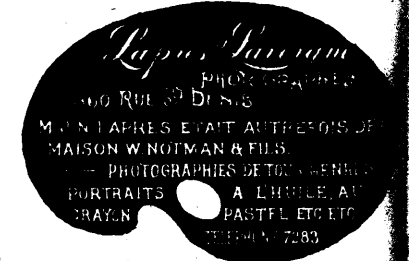 Laprés Lavergne
PHOTOGRAPHES
360 RUE ST DENIS
M. J. N. LAPRES ETAIT AUTREFOIS DE
MAISON W. NOTMAN & FILS.
PHOTOGRAPHIES DE TOUS GENRES
PORTRAITS A L'HUILE, AU
CRAYON PASTEL ETC ETC
TELEPHONE 7283